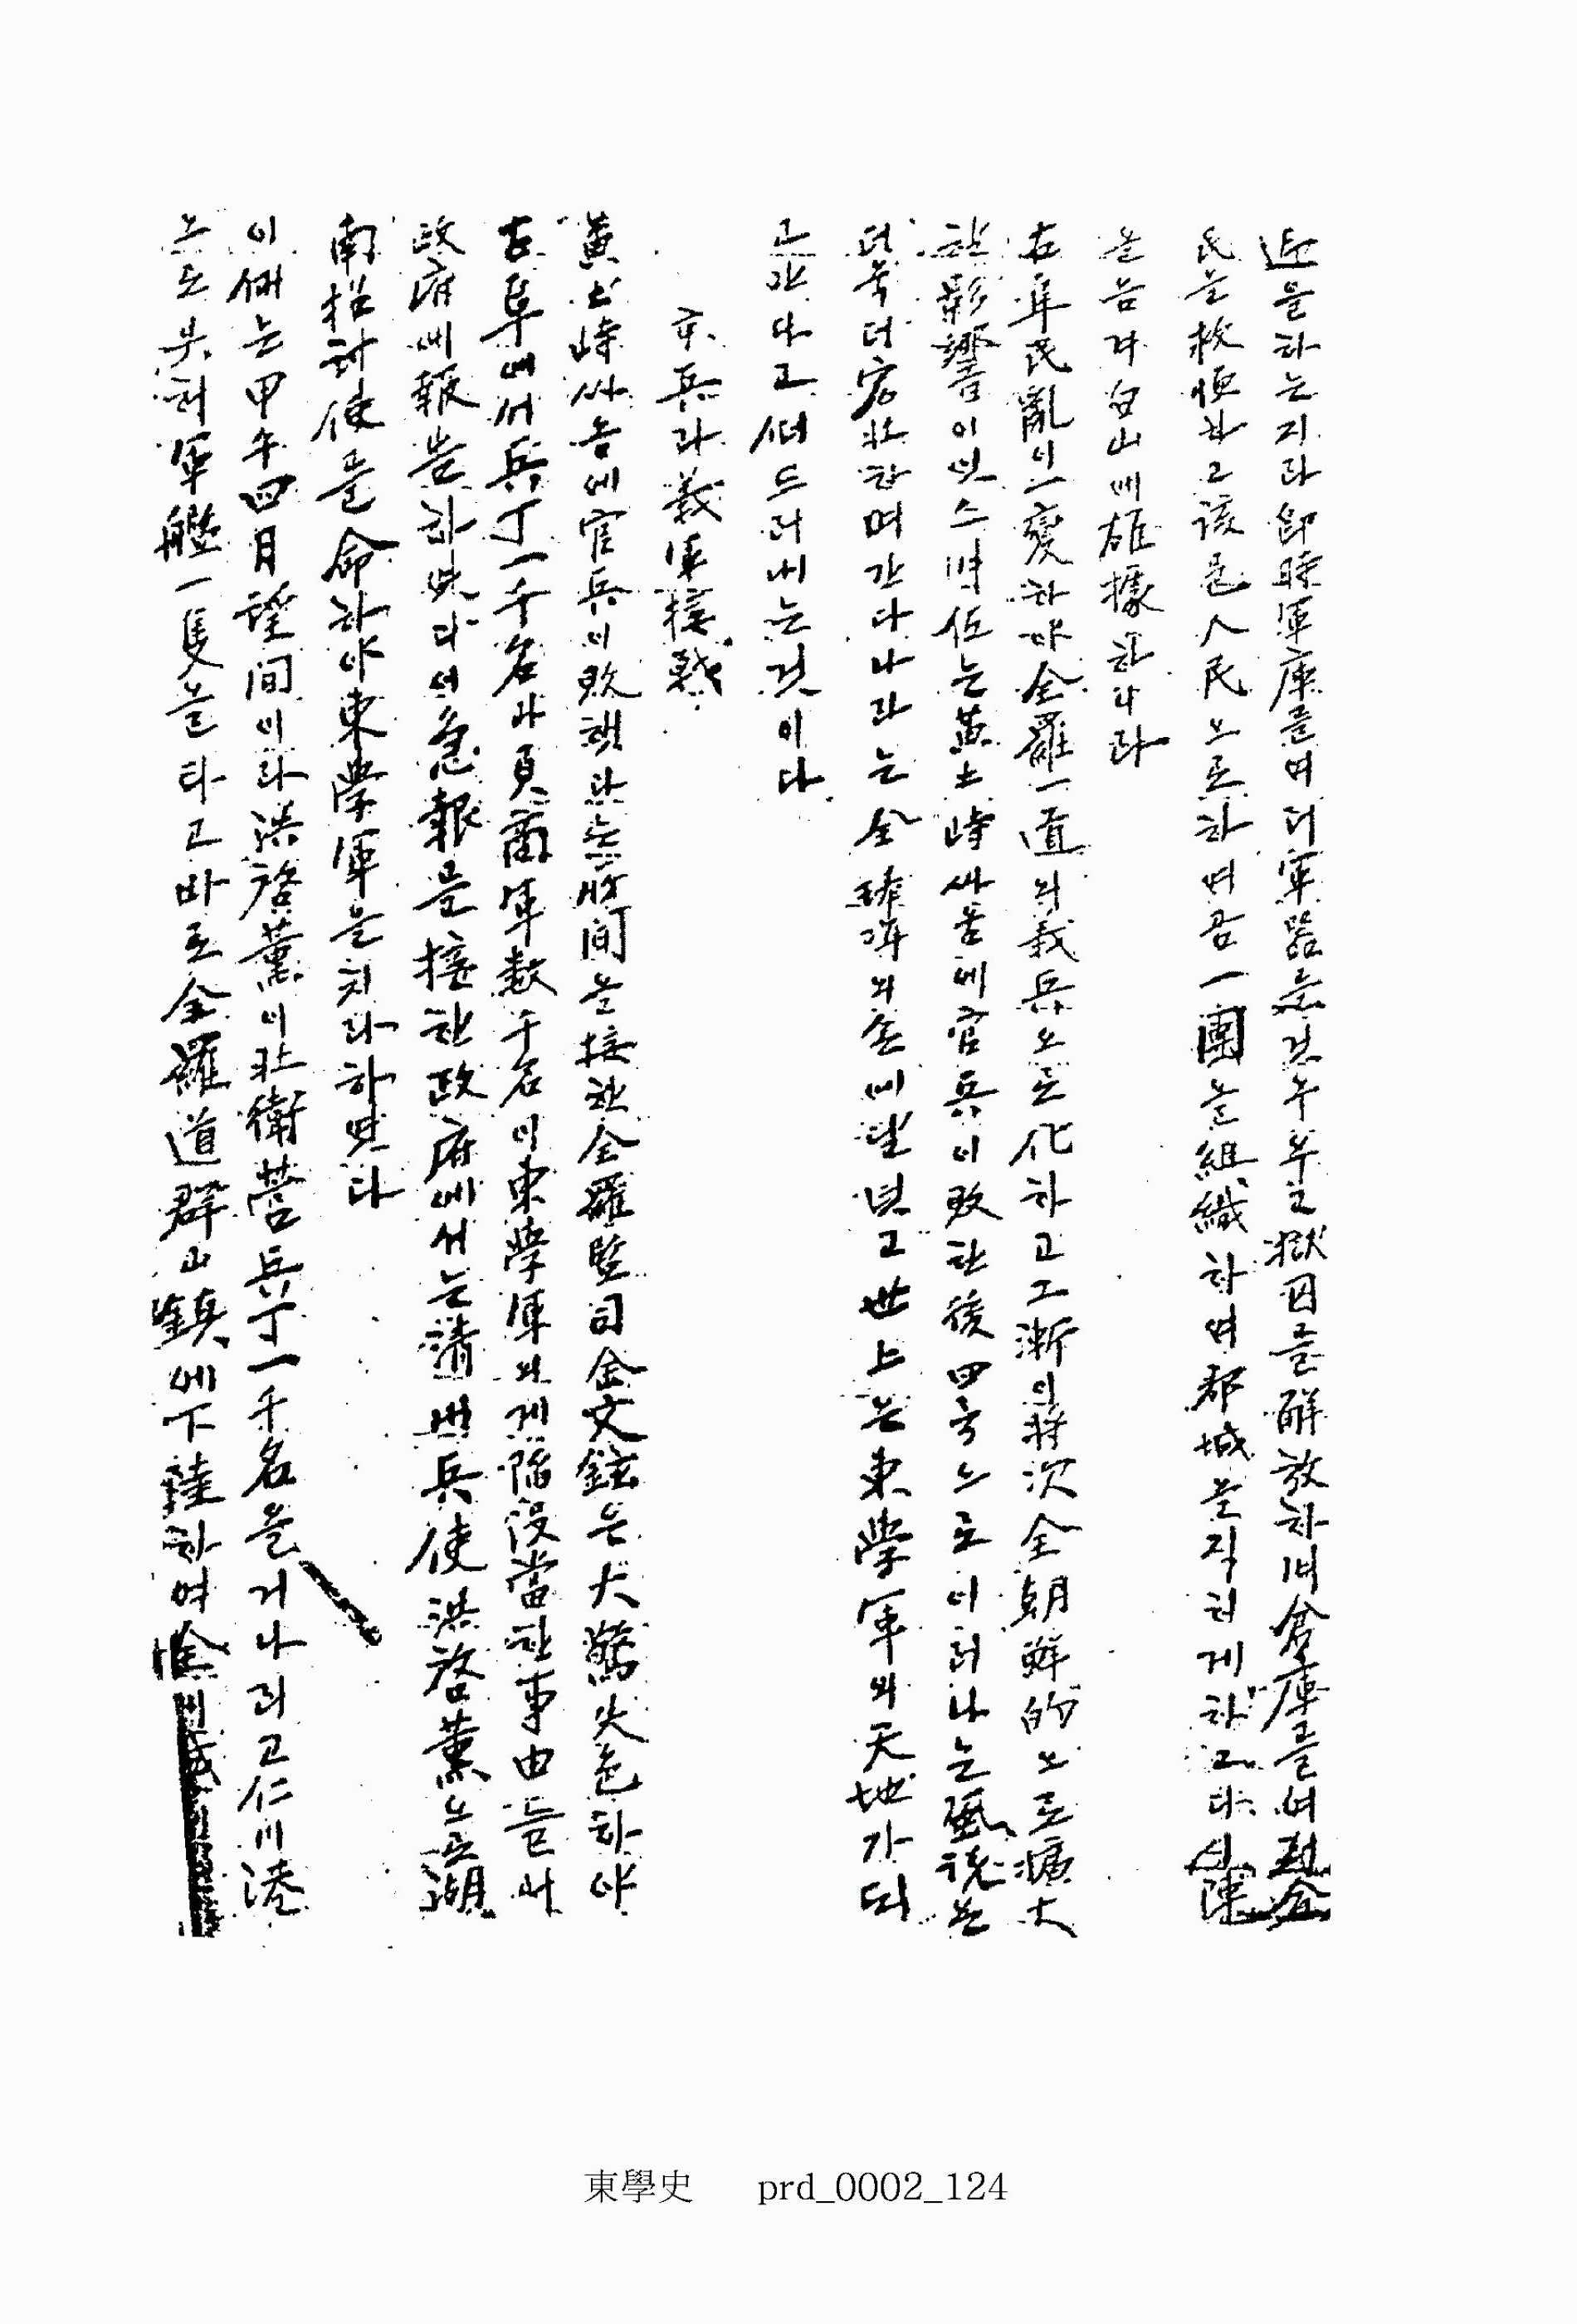 近을하는지라 卽時軍庫를여러軍器을것우우고獄囚를解放하며倉庫를여러全
民을救恤하고該邑人民으로하여곰一團을組織하여郡城을직히게하고다시陳
을음겨白山에雄據하니라
古阜民亂이一變하야全羅一道의義兵으로化하고工漸이將次全朝鮮的으로擴大
한影響이잇스며伍는黃土峙싸움에官兵이敗한後四국으로이러나는風說은
더욱더宏壯하며간다나라는全琫準의손에달녓고世上은東學軍의天地가되
고간다고써드러내는것이다
京兵과義軍接戰
黃土峙싸홈에官兵이敗햇다는所聞을接한全羅監司金文鉉은大驚失色하야
古阜에서兵丁一千名과負商軍數千名이東學軍의게陷沒當한事由를드러
政府에報告하엿다 이急報를接한政府에서는請버兵使洪啓薰으로湖
南招討使를命하야東學軍을치라하엿다
이때는甲午四月望間이라洪啓薰이壯衛營兵丁一千名을거나리고仁川港
으로붓터軍艦一隻을타고바로全羅道群山鎭에下陸하여全
東學史 prd_0002_124